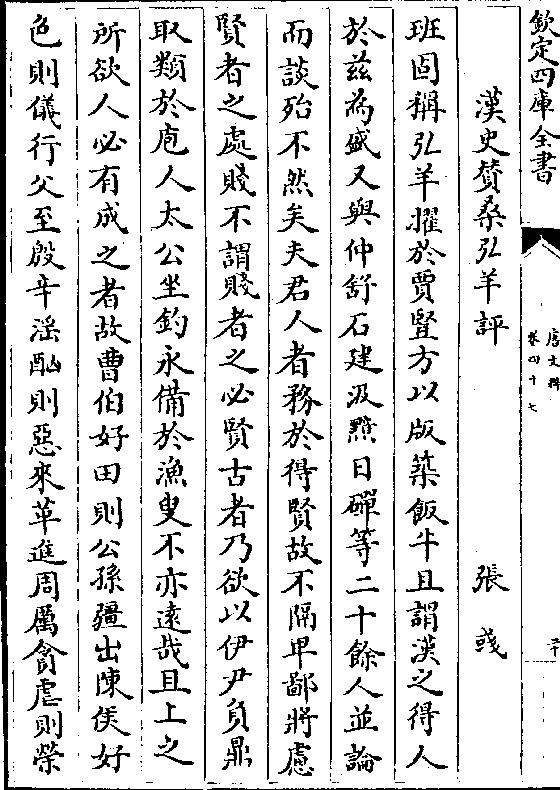 欽定四庫全書
唐文粹
卷四十七
二十
漢史贊桑弘羊評 張彧
班固稱弘羊擢於賈豎方以版築飯牛且謂漢之得人
於茲為盛又與仲舒石建汲黯日磾等二十餘人並論
而談殆不然矣夫君人者務於得賢故不隔卑鄙將慮
賢者之處賤不謂賤者之必賢古者乃欲以伊尹負鼎
取類於庖人太公坐釣永備於漁叟不亦遠哉且上之
所欲人必有成之者故曹伯好田則公孫彊出陳侯好
色則儀行父至殷辛淫酗則惡來革進周厲貪虐則榮